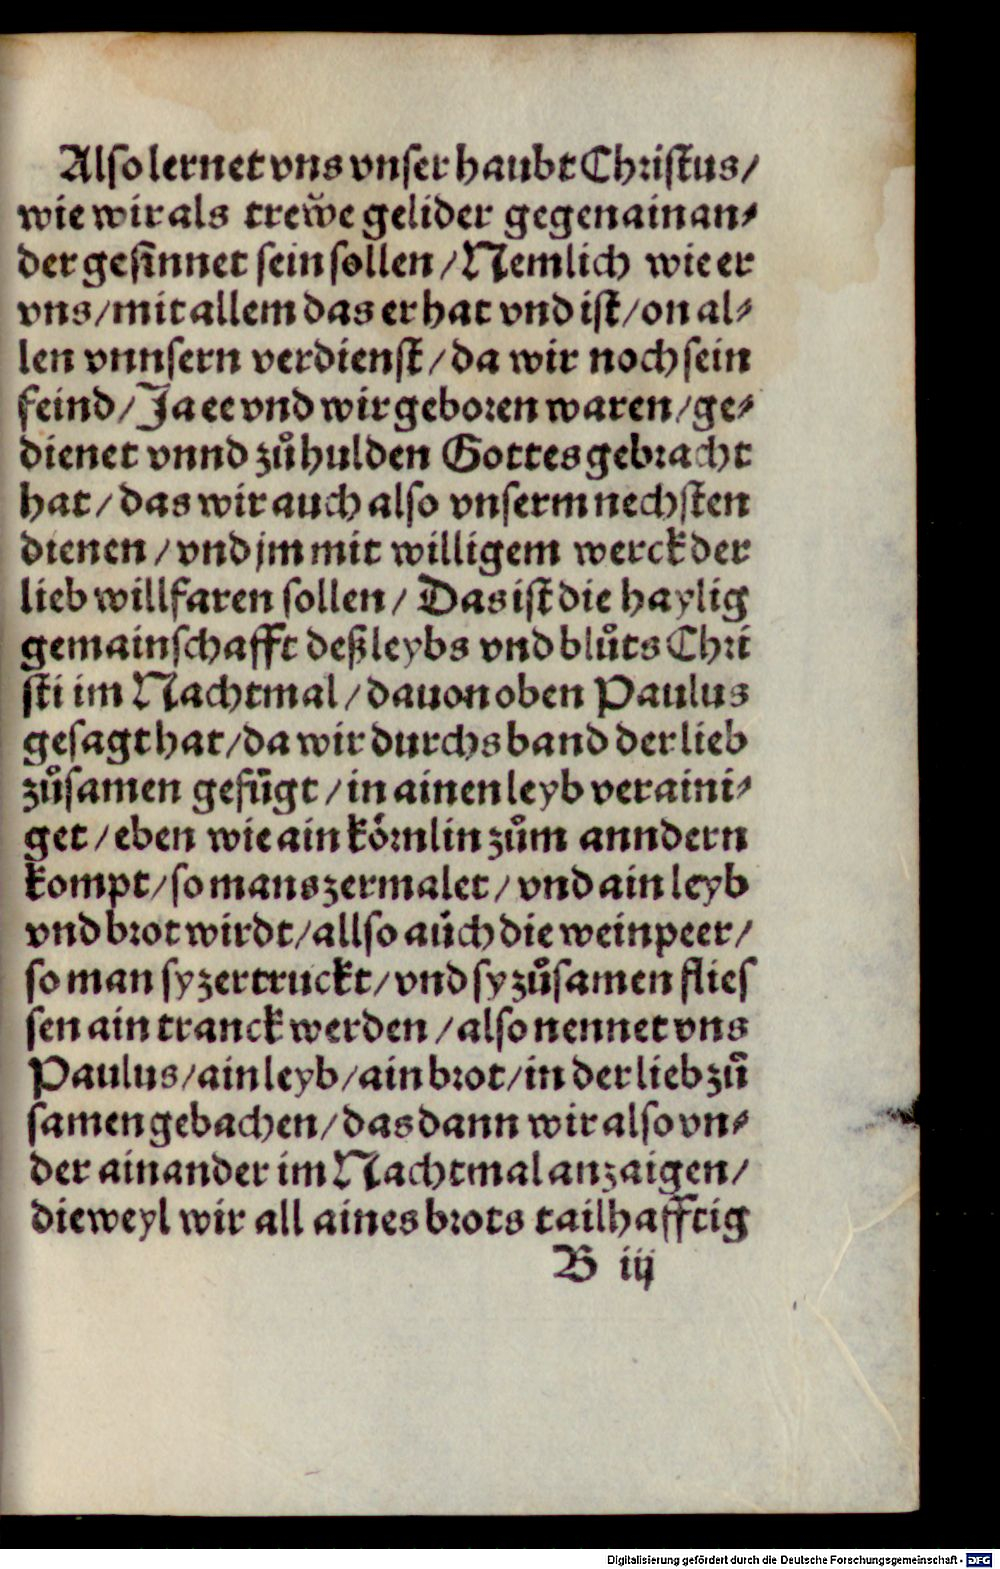 Also lernet vns vnser haubt Christus/
wie wir als trew̃e gelider gegen ainan⸗
der gesinnet sein sollen/Nemlich wie er
vns/mit allem das er hat vnd ist/on al⸗
len vnnsern verdienst/da wir noch sein
feind/Ja ee vnd wir geboren waren/ge⸗
dienet vnnd zuͦ hulden Gottes gebracht
hat/das wir auch also vnserm nechsten
dienen/vnd jm mit willigem werck der
lieb willfaren sollen/Das ist die haylig
gemainschafft deß leybs vnd bluͦts Chri
sti im Nachtmal/dauon oben Paulus
gesagt hat/da wir durchs band der lieb
zuͦsamen gefuͤgt/in ainen leyb veraini⸗
get/eben wie ain koͤrnlin zuͦm anndern
kompt/so mans zermalet/vnd ain leyb
vnd brot wirdt/allso auch die weinpeer/
so man sy zertruckt/vnd sy zuͦsamen flies
sen ain tranck werden/also nennet vns
Paulus/ain leyb/ain brot/in der lieb zuͦ
samen gebachen/das dann wir also vn⸗
der ainander im Nachtmal anzaigen/
dieweyl wir all aines brots tailhafftig
B iij
Digitalisierung gefördert durch die Deutsche Forschungsgemeinschaft - DFG